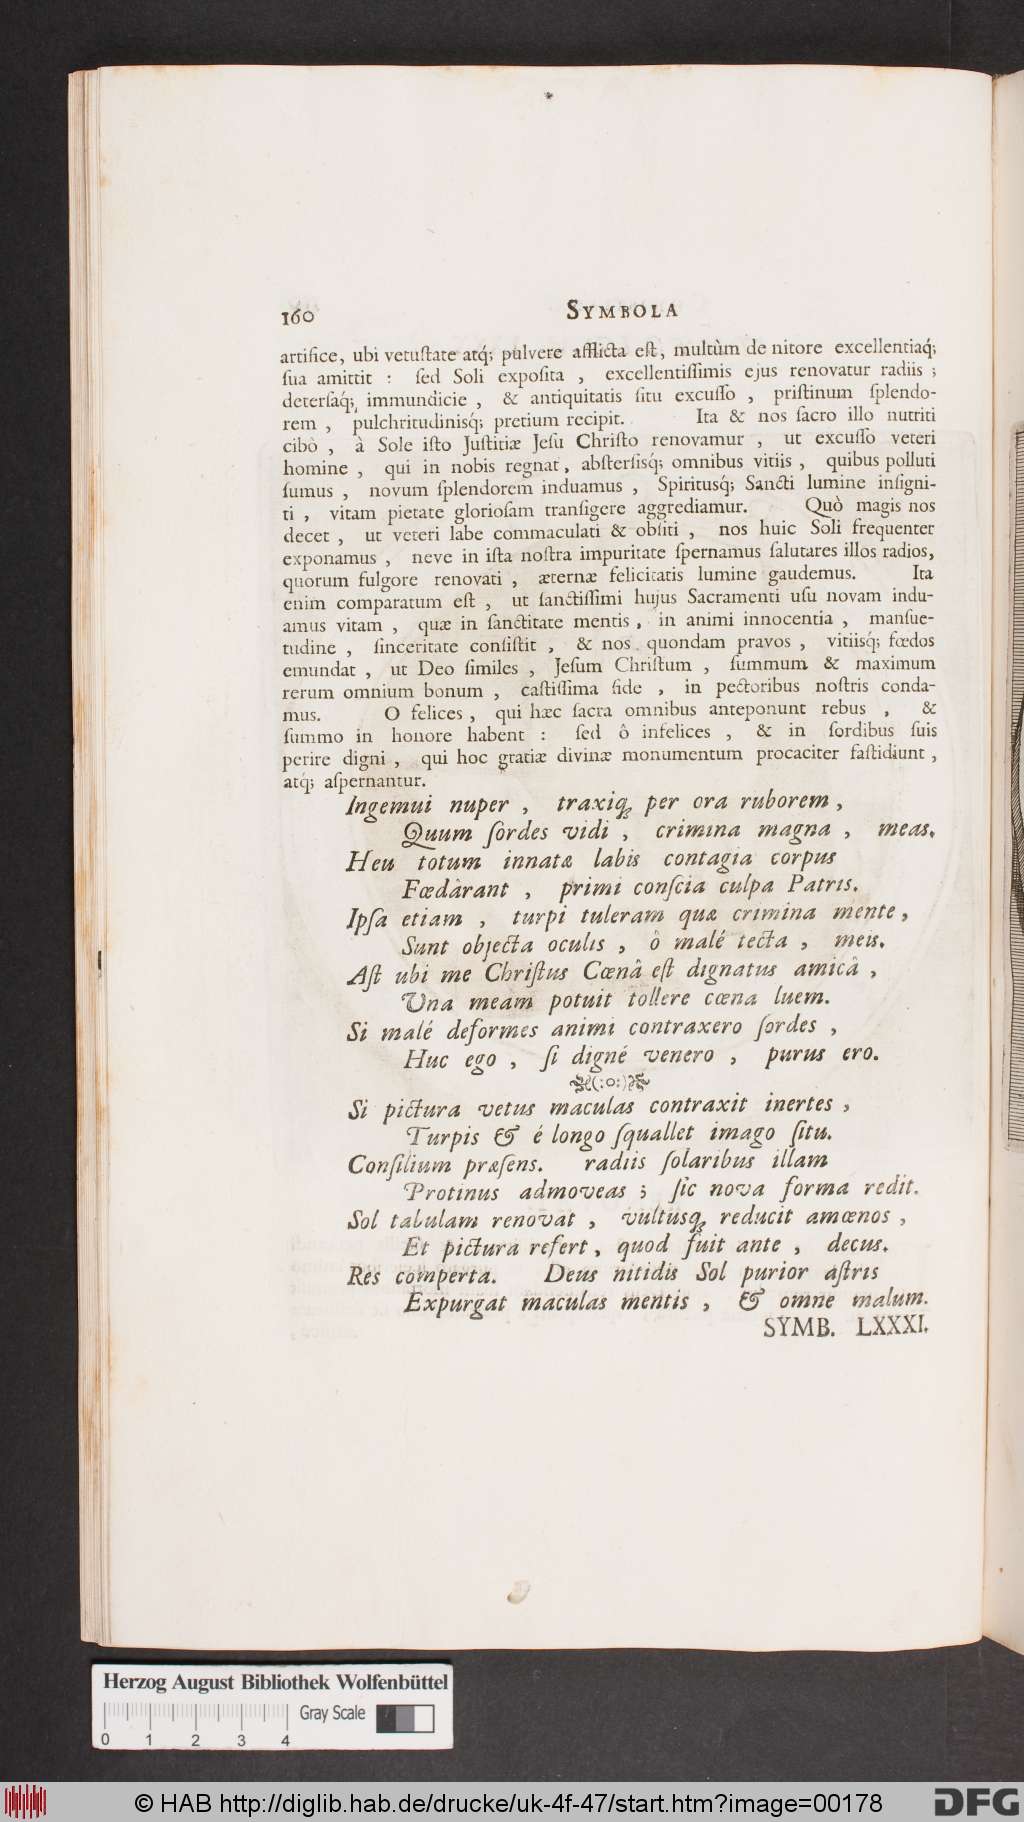 160 SYMBOLA
artifice, ubi vetuſtate atq́; pulvere afflicta eſt, multùm de nitore excellentiaq́;
ſua amittit : ſed Soli expoſita , excellentiſſimis ejus renovatur radiis ;
deterſaq́; immundicie , & antiquitatis ſitu excuſſo , priſtinum ſplendo-
rem , pulchritudinisq́; pretium recipit. Ita & nos ſacro illo nutriti
cibò , à Sole iſto Juſtitiæ Jeſu Chriſto renovamur , ut excuſſo veteri
homine , qui in nobis regnat, abſterſisq́; omnibus vitiis , quibus polluti
ſumus , novum ſplendorem induamus , Spiritusq́; Sancti lumine inſigni-
ti , vitam pietate glorioſam tranſigere aggrediamur. Quò magis nos
decet , ut veteri labe commaculati & obſiti , nos huic Soli frequenter
exponamus , neve in iſta noſtra impuritate ſpernamus ſalutares illos radios,
quorum fulgore renovati , æternæ felicitatis lumine gaudemus. Ita
enim comparatum eſt , ut ſanctiſſimi hujus Sacramenti uſu novam indu-
amus vitam , quæ in ſanctitate mentis , in animi innocentia , manſue-
tudine , ſinceritate conſiſtit , & nos quondam pravos , vitiisq́; fœdos
emundat , ut Deo ſimiles , Jeſum Chriſtum , ſummum & maximum
rerum omnium bonum , caſtiſſima fide , in pectoribus noſtris conda-
mus. O felices , qui hæc ſacra omnibus anteponunt rebus , &
ſummo in honore habent : ſed ô infelices , & in ſordibus ſuis
perire digni , qui hoc gratiæ divinæ monumentum procaciter faſtidiunt ,
atq́; aſpernantur.
Ingemui nuper , traxiq; per ora ruborem ,
Quum ſordes vidi , crimina magna , meas.
Heu totum innatæ labis contagia corpus
Fœdârant , primi conſcia culpa Patris.
Ipſa etiam , turpi tuleram quæ crimina mente ,
Sunt objecta oculis , ô malé tecta , meis.
Aſt ubi me Chriſtus Cœnâ eſt dignatus amicâ ,
Una meam potuit tollere cœna luem.
Si malé deformes animi contraxero ſordes ,
Huc ego , ſi digné venero , purus ero.
(:o:)
Si pictura vetus maculas contraxit inertes ,
Turpis & é longo ſquallet imago ſitu.
Conſilium præſens. radiis ſolaribus illam
Protinus admoveas ; ſic nova forma redit.
Sol tabulam renovat , vultusq; reducit amœnos ,
Et pictura refert , quod fuit ante , decus.
Res comperta. Deus nitidis Sol purior aſtris
Expurgat maculas mentis , & omne malum.
SYMB. LXXXI.
Herzog August Bibliothek Wolfenbüttel
Gray Scale
0 1 2 3 4
© HAB http://diglib.hab.de/drucke/uk-4f-47/start.htm?image=00178
DFG